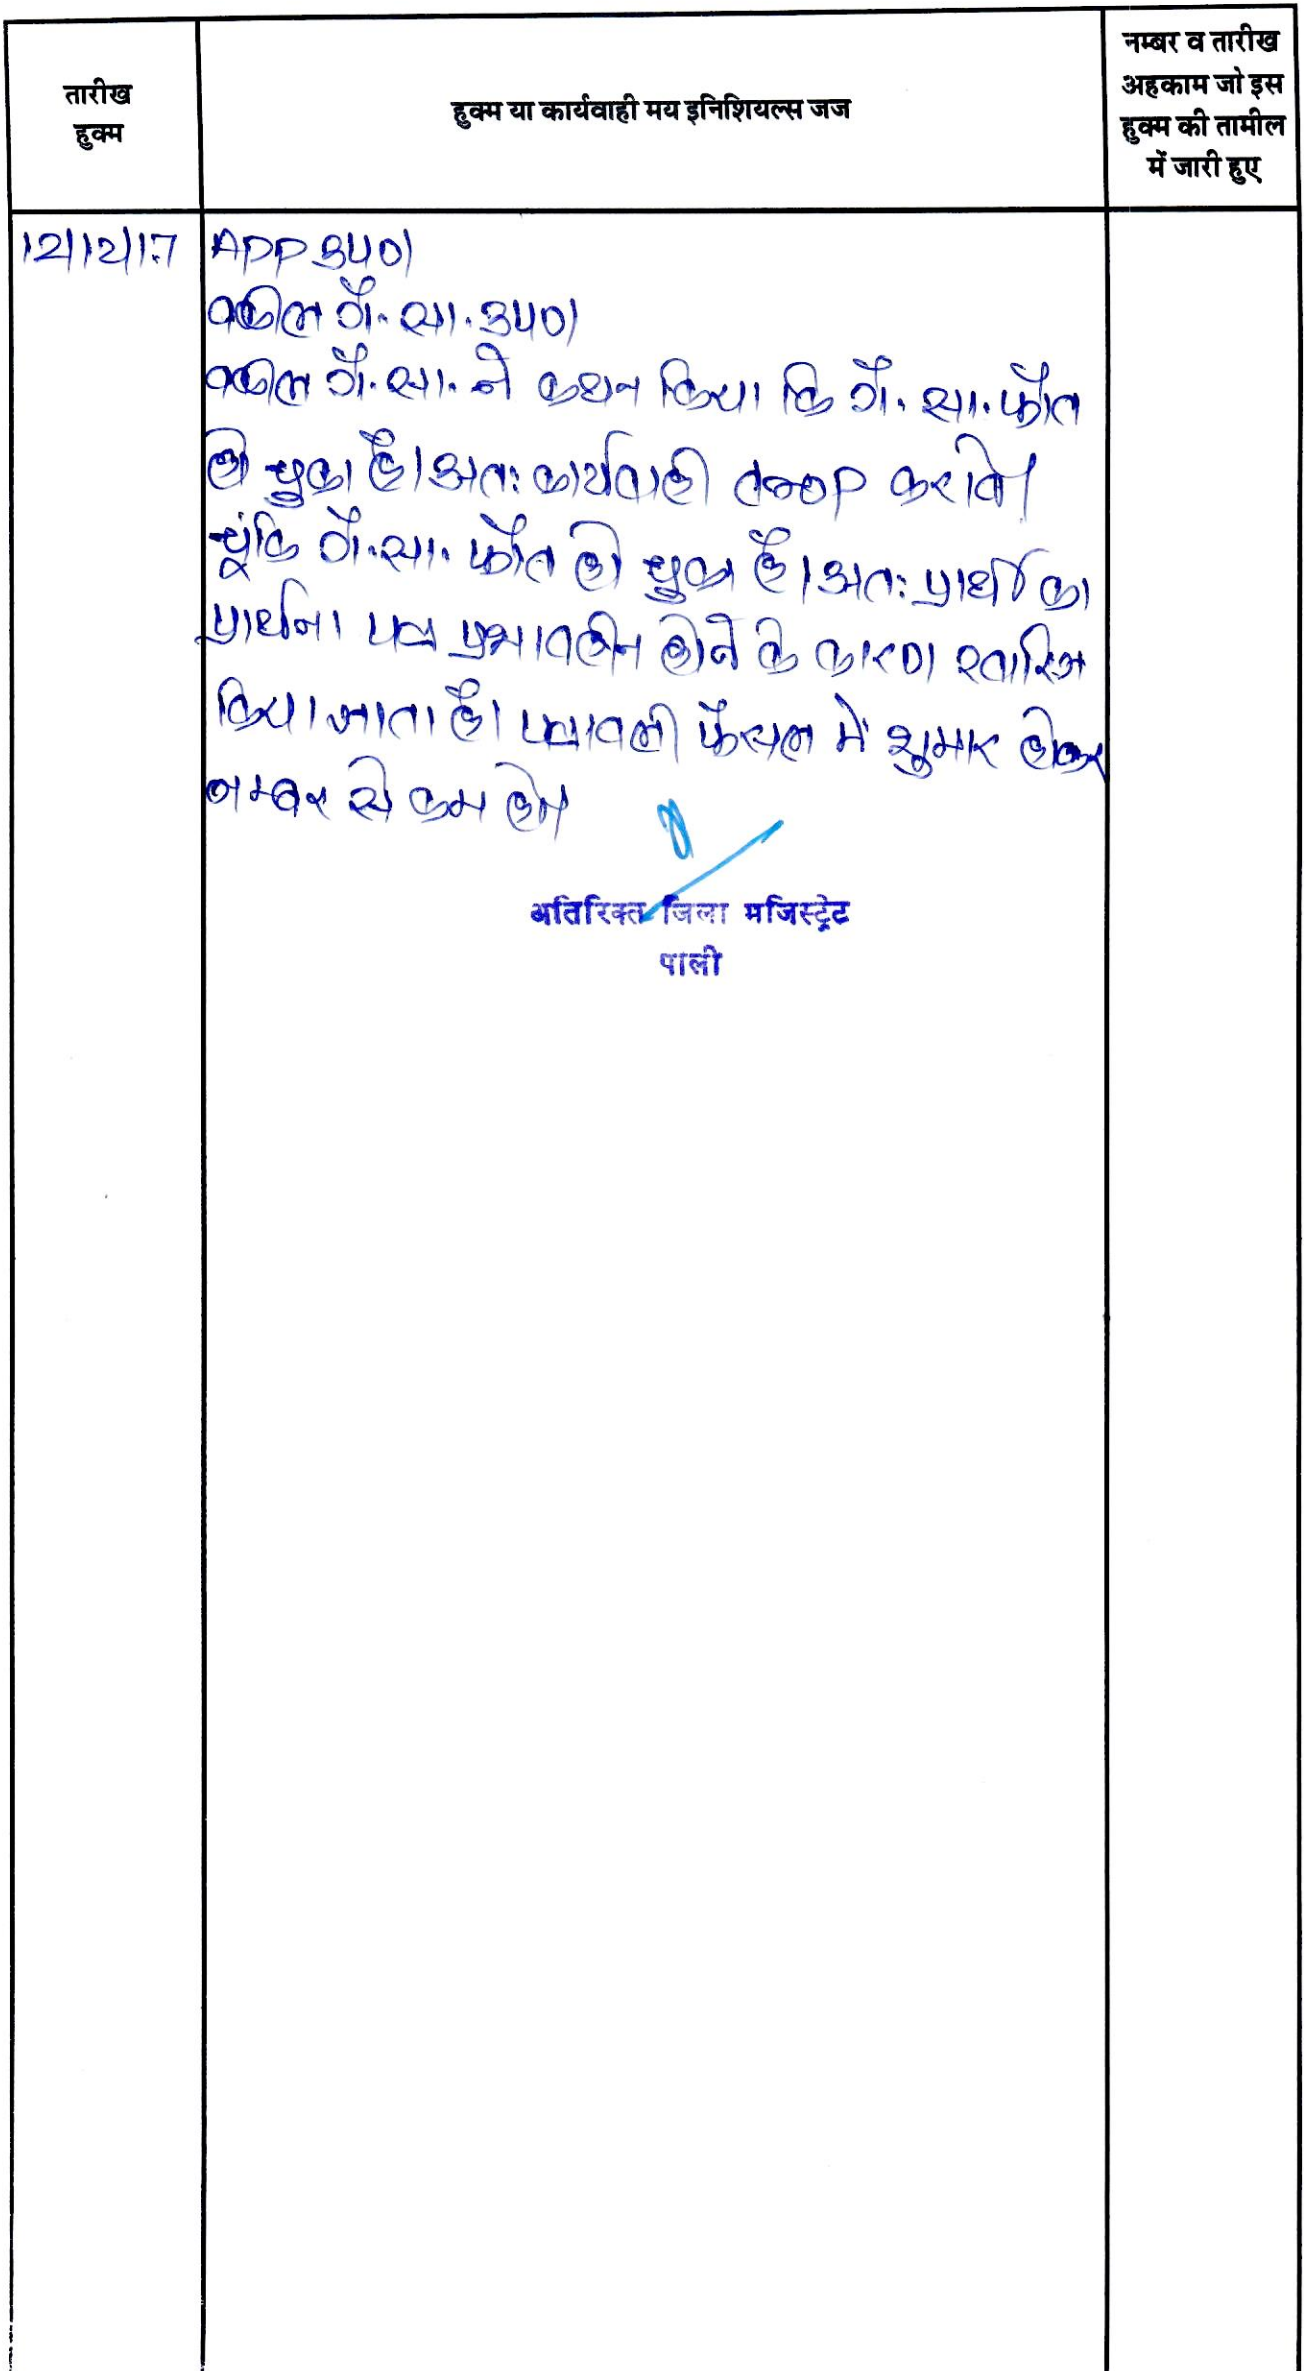 तारीख
हुक्म
हुक्म या कार्यवाही मय इनिशियल्स जज
नम्बर व तारीख
अहकाम जो इस
हुक्म की तामील
में जारी हुए
12/12/17
APP उप0।
वकील गै. सा. उप0।
वकील गै. सा. ने कथन किया कि गै. सा. फौत
हो चुका है। अतः कार्यवाही करावे।
चूंकि गै. सा. फौत हो चुका है। अतः प्रार्थी का
प्रार्थना पत्र प्रभावहीन होने के कारण खारिज
किया जाता है। पत्रावली फैसल में शुमार होकर
नम्बर से कम हो।
अतिरिक्त जिला मजिस्ट्रेट
पाली